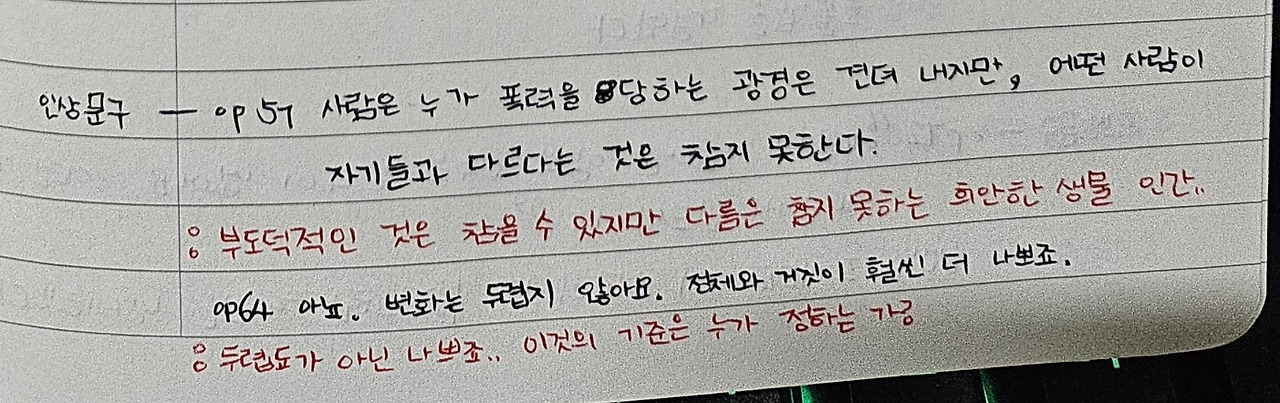 인상문구 — op 57 사람은 누가 폭력을 당하는 광경은 견뎌 내지만, 어떤 사람이
자기들과 다르다는 것은 참지 못한다.
: 부도덕적인 것은 참을 수 있지만 다름은 참지 못하는 희안한 생물 인간..
op64 아뇨. 변화는 두렵지 않아요. 정체와 거짓이 훨씬 더 나쁘죠.
: 두렵죠가 아닌 나쁘죠.. 이것의 기준은 누가 정하는 가?